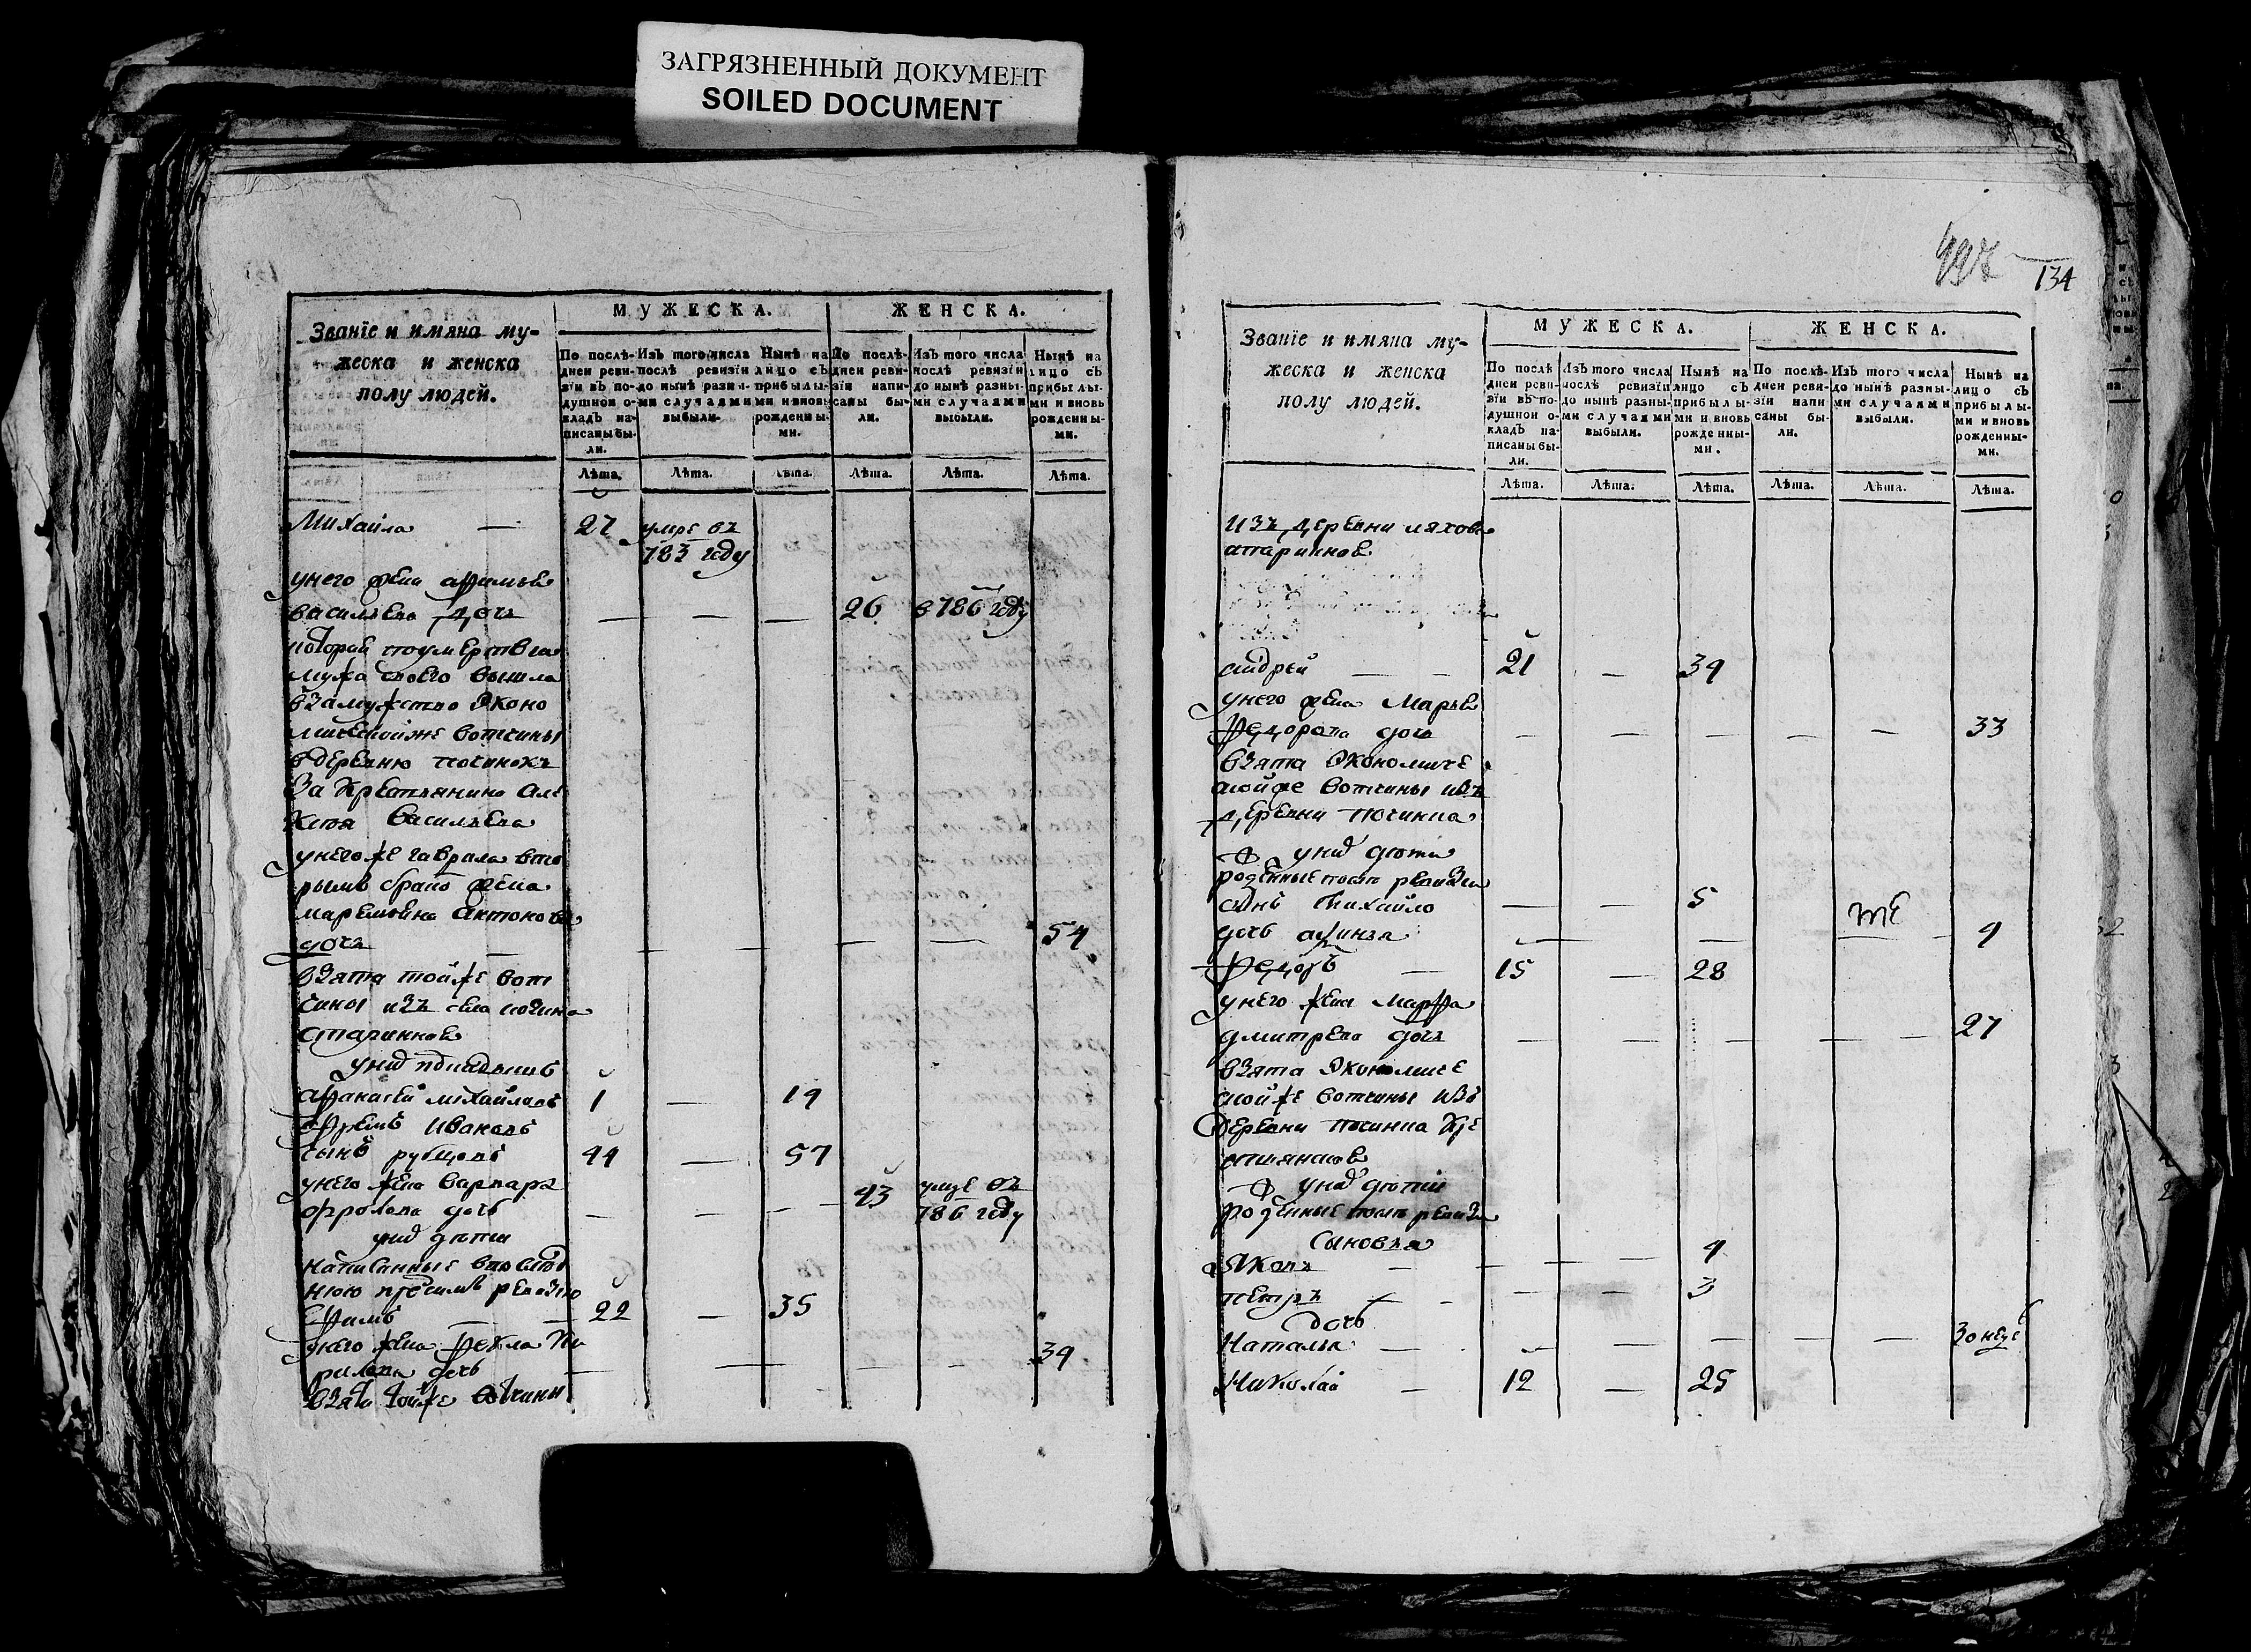 ЗАГРЯЗНЕННЫЙ ДОКУМЕНТ
SOILED DOCUMENT
Званїе и имяна му-
жеска и женска
полу людей.
МУЖЕСКА.
ЖЕНСКА.
По послѣ-
дней реви-
зїи въ по-
душной о-
кладъ на-
писаны бы-
ли.
Изъ того числа
послѣ ревизїи
до нынѣ разны-
ми случаями
выбыли.
Нынѣ на
лицо съ
прибылы-
ми и вновь
рожденны-
ми.
По послѣ-
дней реви-
зїи напи-
саны бы-
ли.
Изъ того числа
послѣ ревизїи
до нынѣ разны-
ми случаями
выбыли.
Нынѣ на
лицо съ
прибылы-
ми и вновь
рожденны-
ми.
Лѣта. Лѣта. Лѣта. Лѣта. Лѣта. Лѣта.
Михаила — 27 умре въ
783 году
унего жена
василева дочь — — — 26 в 786 году
которая поумертвии
мужа своего вышла
взамужство Эконо
мической же вотчины
вдеревню починокъ
За Крестьянина Але
Васильева
унегоже гаврила вто
рымъ бракомъ жена
антонова
дочь — — — — — 54
взята тойже вот
чины изъ села
старинная
унихъ
афанасей михайловъ 1 — 19
ефремъ Ивановъ
сынъ рубцовъ 44 — 57
унего жена варвара
фролова дочь — — — 43 умре въ
786 году
унихъ дѣти
написанные впослѣд
нюю предъ симъ ревизию
Ефимъ — — 22 — 35
унего жена фекла Ки
рилова дочь — — — — — 39
взята тойже вотчины
134
Званїе и имяна му-
жеска и женска
полу людей.
МУЖЕСКА.
ЖЕНСКА.
По послѣ
дней реви-
зїи въ по-
душной о-
кладъ на-
писаны бы-
ли.
Изъ того числа
послѣ ревизїи
до нынѣ разны-
ми случаями
выбыли.
Нынѣ на
лицо съ
прибылы-
ми и вновь
рожденны-
ми.
По послѣ-
дней реви-
зїи напи
саны бы-
ли.
Изъ того числа
до нынѣ разны-
ми случаями
выбыли.
Нынѣ на
лицо съ
прибылы-
ми и вновь
рожденны-
ми.
Лѣта. Лѣта. Лѣта. Лѣта. Лѣта. Лѣта.
Изъ деревни ляхова
старинная
андрей — — 21 — 34
унего жена Марья
федорова дочь — — — — — 33
взята Экономиче
ской же вотчины изъ
деревни починка
унихъ дѣти
рожденные послѣ ревизии
сынъ Михайло — — 5
дочь — — — 4
федоръ — 15 — 28
унего жена марфа
дмитрева дочь — — — — — 27
взята Экономиче
ской же вотчины изъ
деревни починка Кре
стьянская
унихъ дѣти
рожденные послѣ ревизии
сыновья
Яковъ — — — 4
петръ — — — 3
дочь
Наталья — — — — — 3 недѣ
Николай — 12 — 25